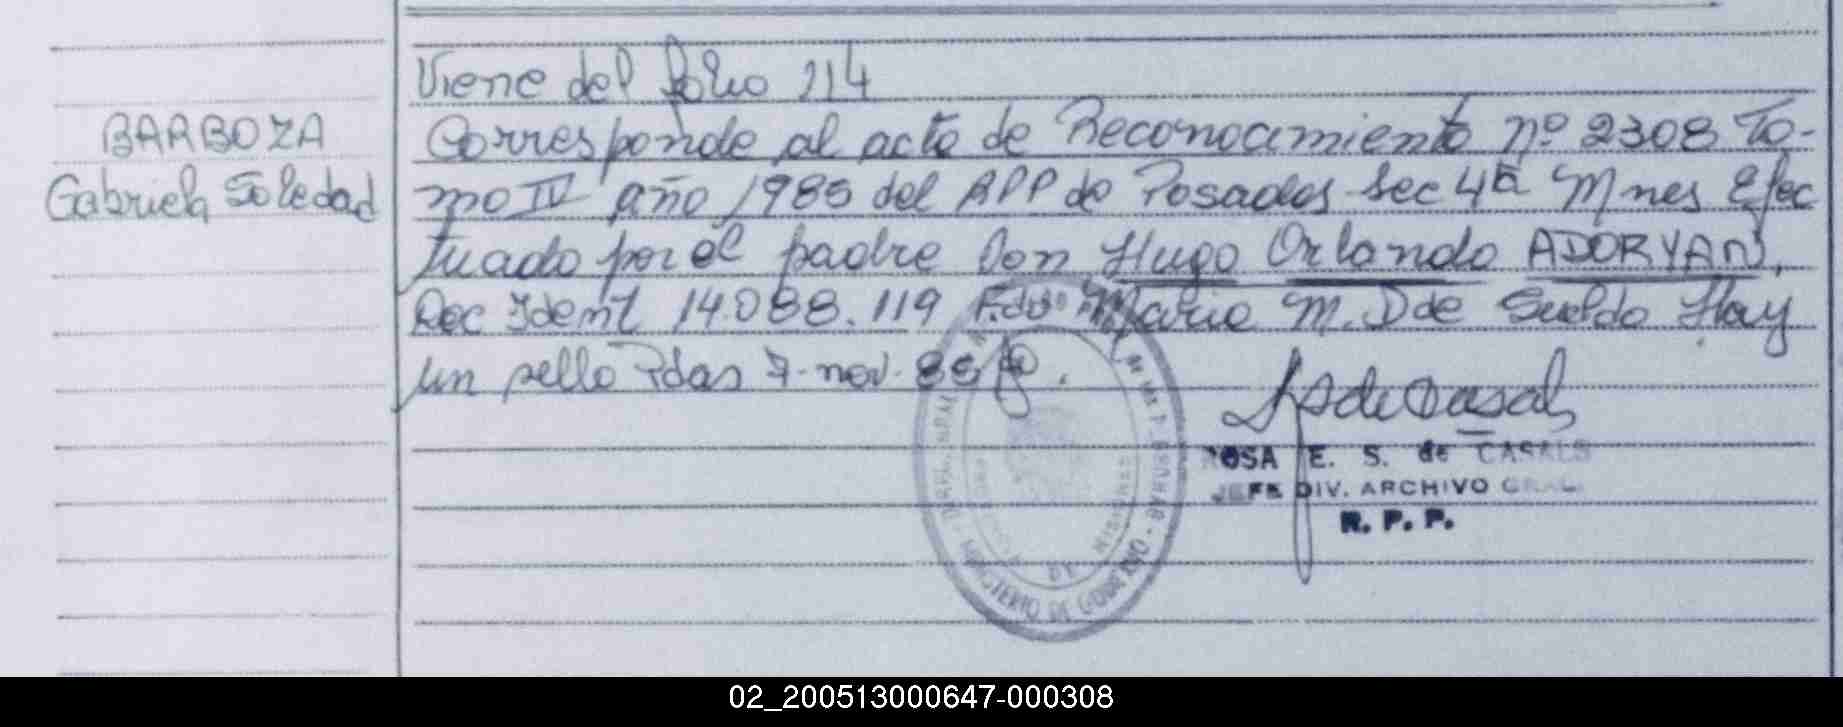 Viene del folio 214
BARBOZA
Corresponde al acta de Reconocimiento nº 2308 To-
Gabriela Soledad
mo IV año 1985 del RPP de Posadas Sec 4ª Mnes Efec
tuado por el padre Don Hugo Orlando ADORYAN,
Doc Ident 14.088.119 Fdo Maria M. D de Sueldo Hay
un sello Pdas 7. nov. 85
ROSA E. S. de CASALS
JEFE DIV. ARCHIVO GRAL.
R. P. P.
MINISTERIO DE GOBIERNO
02_200513000647-000308